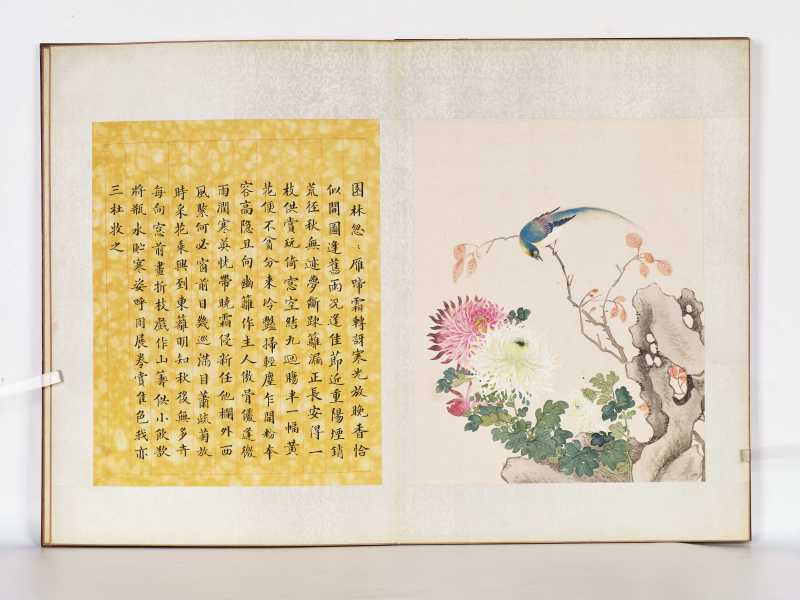 園林忽〻雁啼霜轉訝寒光放晚香恰
似間園逢舊雨况逢佳節近重陽煙銷
荒径秋無迹夢斷疎籬漏正長安得一
枝供賞玩倚窓空結九迴腸丰一幅黄
花便不貧分来吟艷掃輕塵乍開粉本
容高隐且向幽籬作主人傲骨儘逢微
雨潤寒英恍帶曉霜侵新任他欄外西
風緊何必窗前日幾巡滿目蕭疎菊放
時采花乘興到東籬明知秋後無多卉
每向窓前畫折枝戲作山籌供小飲歡
將瓶水貯寒姿呼同展卷賞佳色我亦
三杜牧之